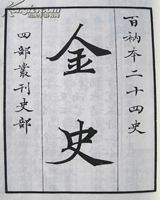 百衲本二十四史
金史
四部叢刊史部